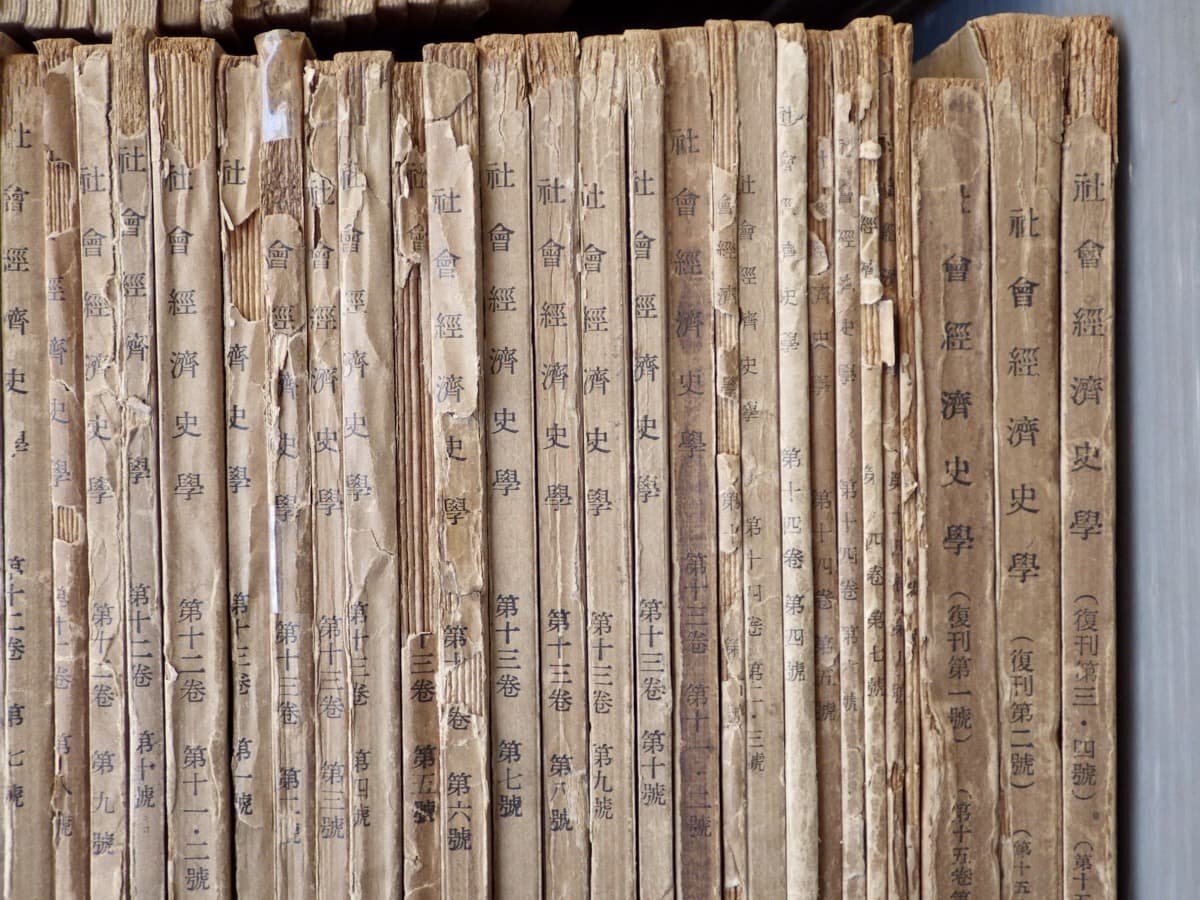 會經濟史學 十二卷 第七號
經濟史學 十二卷 第八號
社會經濟史學 第十二卷 第九號
社會經濟史學 第十二卷 第十號
社會經濟史學 第十二卷 第十一・二號
社 濟史學 第十三卷 第一號
會經濟史學 第十三卷 第二號
社會經濟史學 第十三卷 第三號
社會經濟史學 第十三卷 第四號
社會 十三卷 第五號
社會經濟史學 第十 卷 第六號
社會經濟史學 第十三卷 第七號
社會經濟史學 第十三卷 第八號
社會經濟史學 第十三卷 第九號
社會經濟史學 第十三卷 第十號
社會經濟史學 第十三卷 第十一・二號
會經濟史學 第十
社會經濟史學 第十四卷 第二・三號
社會經濟史學 第十四卷 第四號
社會經濟史學 第十四卷 第五號
社會經濟史學 第十四卷 第六號
經 第 四卷 第七號
會經濟史學(復刊第一號)(第十五卷第
社會經濟史學(復刊第二號)(第十五
社會經濟史學(復刊第三・四號)(第十五